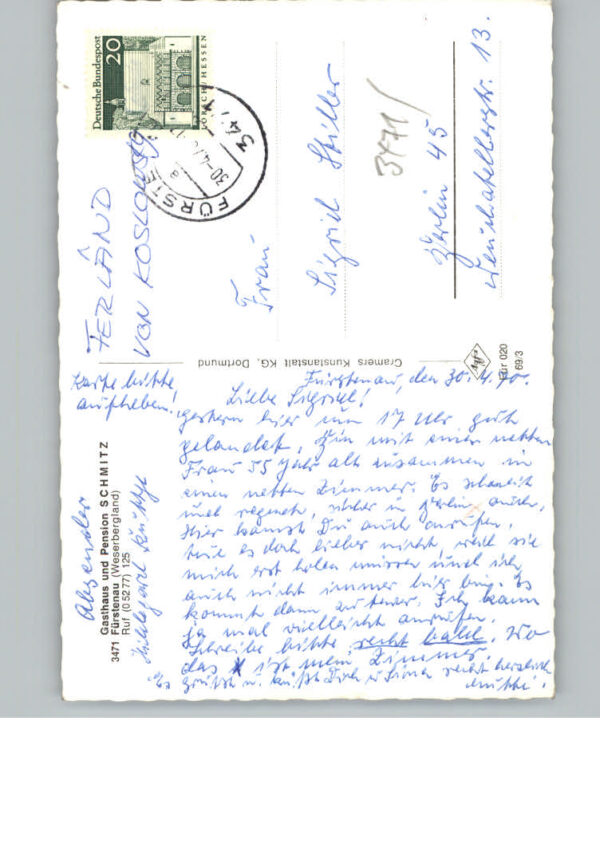 Karte bitte
aufheben!
Absender
Gasthaus und Pension SCHMITZ
3471 Fürstenau (Weserbergland)
Ruf (0 52 77) 125
Hildegard
Fürstenau, den 30.4.70.
Liebe Sigrid!
gestern hier um 17 Uhr gut
gelandet, Bin mit einer netten
Frau 55 Jahr alt zusammen in
einen netten Zimmer. Es schneit
und regnet, sicher in Berlin auch.
Hier kannst Du auch anrufen,
tu es doch lieber nicht, weil sie
mich erst holen müssen und ich
auch nicht immer hier bin. Es
kommt dann zu teuer. Ich kann
ja mal vielleicht anrufen.
Schreibe bitte recht bald. Wo
das X ist mein Zimmer.
Es grüßt u. küßt Dich u. recht herzlich
Mutti.
Cramers Kunstanstalt KG, Dortmund
Agfa
Für 020
69/3
Deutsche Bundespost
20
LORSCH/HESSEN
FÜRSTE
30.-4.70
3471
FERLÂND
VON KOSLOWSKY
Frau
Sigrid Stiller
3471/
Berlin 45
Neuchatellerstr. 13.